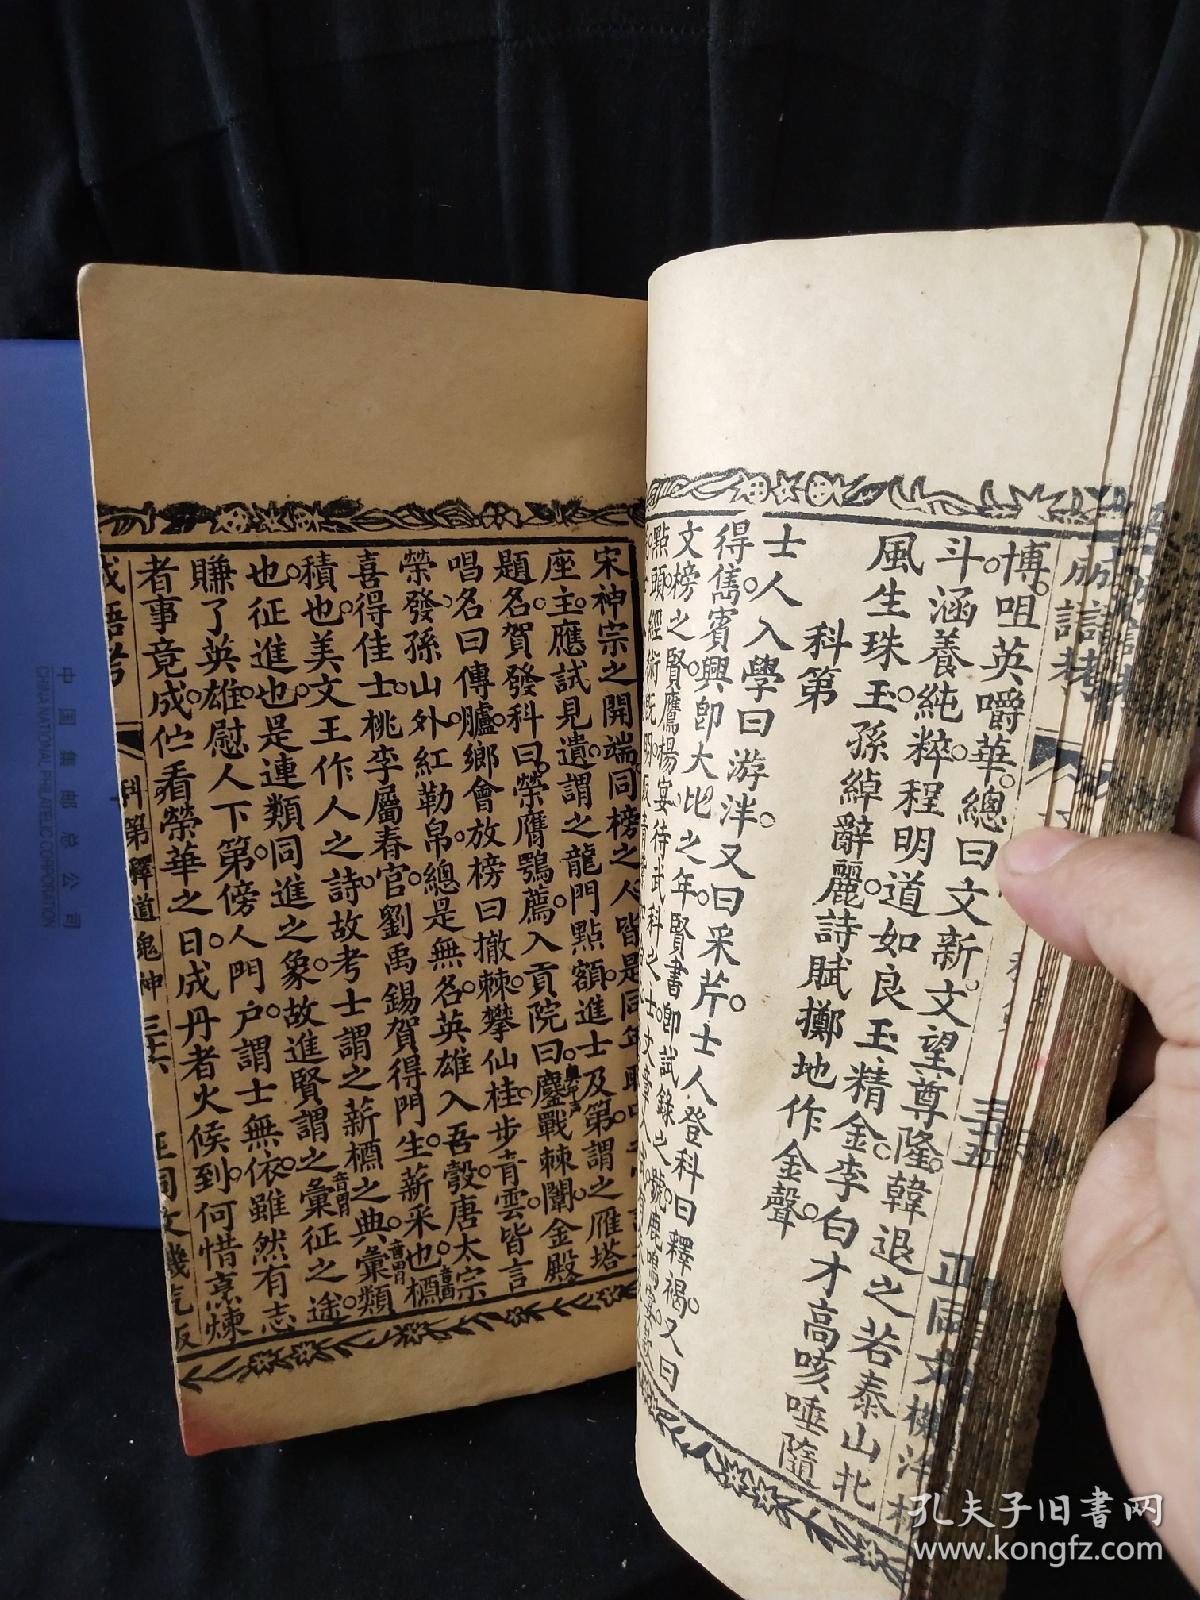 成語考
三十五
正同文機
博。咀英嚼華。總曰文新。文望尊隆。韓退之若泰山北
斗。涵養純粹。程明道如良玉精金。李白才高。咳唾隨
風生珠玉。孫綽辭麗。詩賦擲地作金聲。
科第
士人入學曰游泮。又曰采芹。士人登科曰釋褐。又曰
得雋。賓興即大比之年。賢書即試錄之號。鹿鳴宴
文榜之賢。鷹楊宴待武科之士。文章
點頭。經術既明。
宋神宗之開端。同榜之人皆是同年。
座主。應試見遺。謂之龍門點額。進士及第。謂之雁塔
題名。賀發科曰。榮膺鶚薦。入貢院曰。鏖戰棘闈。金殿
唱名曰傳臚。鄉會放榜曰撤棘。攀仙桂。步青雲。皆言
榮發。孫山外。紅勒帛。總是無名。英雄入吾彀。唐太宗
喜得佳士。桃李屬春官。劉禹錫賀得門生。薪采也。槱
積也。美文王作人之詩。故考士謂之薪槱之典。彙類
也。征進也。是連類同進之象。故進賢謂之彙征之途。
賺了英雄。慰人下第。傍人門户。謂士無依。雖然有志
者事竟成。伫看榮華之日。成丹者火候到。何惜烹煉
成語考
科第釋道鬼神
三十六
正同文機器板
中国集邮总公司
CHINA NATIONAL PHILATELIC CORPORATION
孔夫子旧书网
www.kongfz.com